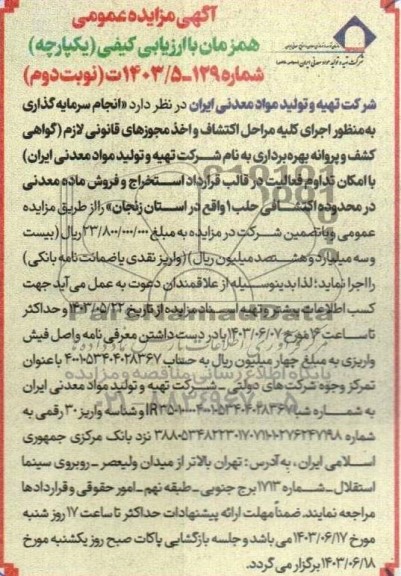 آگهی مزایده عمومی
همزمان با ارزیابی کیفی (یکپارچه)
شماره ۱۲۹-۱۴۰۳/۵ت (نوبت دوم)
شرکت تهیه و تولید مواد معدنی ایران در نظر دارد «انجام سرمایه گذاری
به منظور اجرای کلیه مراحل اکتشاف و اخذ مجوزهای قانونی لازم (گواهی
کشف و پروانه بهره برداری به نام شرکت تهیه و تولید مواد معدنی ایران)
با امکان تداوم فعالیت در قالب قرارداد استخراج و فروش ماده معدنی
در محدوده اکتشافی حلب ۱ واقع در استان زنجان» را از طریق مزایده
عمومی و با تضمین شرکت در مزایده به مبلغ ۲۳/۸۰۰/۰۰۰/۰۰۰ ریال (بیست
و سه میلیارد و هشتصد میلیون ریال) (واریز نقدی یا ضمانت نامه بانکی)
را اجرا نماید؛ لذا بدینوسیله از علاقمندان دعوت به عمل می آید جهت
کسب اطلاعات بیشتر و تهیه اسناد مزایده از تاریخ ۱۴۰۳/۰۵/۲۲ و حداکثر
تا ساعت ۱۶ مورخ ۱۴۰۳/۰۶/۰۷ با در دست داشتن معرفی نامه واصل فیش
واریزی به مبلغ چهار میلیون ریال به حساب ۴۰۰۱۰۵۳۴۰۴۰۲۸۳۶۷ با عنوان
تمرکز وجوه شرکت های دولتی - شرکت تهیه و تولید مواد معدنی ایران
به شماره شبا و شناسه واریز ۳۰ رقمی به
شماره نزد بانک مرکزی جمهوری
اسلامی ایران، به آدرس: تهران بالاتر از میدان ولیعصر - روبروی سینما
استقلال - شماره ۱۷۱۳ برج جنوبی - طبقه نهم - امور حقوقی و قراردادها
مراجعه نمایند. ضمناً مهلت ارائه پیشنهادات حداکثر تا ساعت ۱۷ روز شنبه
مورخ ۱۴۰۳/۰۶/۱۷ می باشد و جلسه بازگشایی پاکات صبح روز یکشنبه مورخ
۱۴۰۳/۰۶/۱۸ برگزار می گردد.